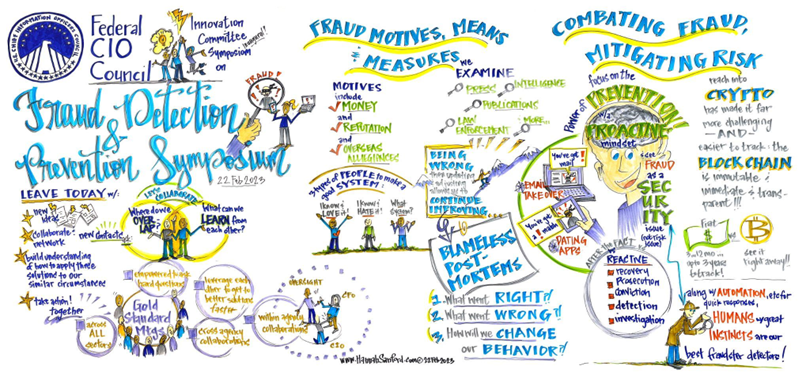 U.S. CHIEF INFORMATION OFFICERS COUNCIL
Federal
CIO
Council
Innovation
Committee
Symposium
on
Fraud Detection
&
Prevention Symposium
22 Feb 2023
FRAUD!
LEAVE TODAY w/:
new
new contacts
collaborate
network
build understanding
of how to apply these
solutions to our
similar circumstances
take action!
together
LET'S COLLABORATE
Where do we
OVERLAP?
What can we
LEARN from
each other?
empowered to ask
hard questions
leverage each
other to get to
better solutions
faster
Gold
Standard
Mtgs
across
ALL
sectors
cross agency
collaborations
within agency
collaborations
OVERSIGHT
CFO
CIO
FRAUD MOTIVES, MEANS
& MEASURES
MOTIVES
include
MONEY
and
REPUTATION
and
OVERSEAS
ALLEGIANCES
we
EXAMINE
PRESS
INTELLIGENCE
PUBLICATIONS
LAW
ENFORCEMENT
MORE...
3 types of PEOPLE to make a
good SYSTEM:
I know &
LOVE it!
I know &
HATE it!
What
system?
BEING
WRONG
CONTINUE
IMPROVING...
BLAMELESS
POST-
MORTEMS
1. What went RIGHT?!
2. What went WRONG?!
3. How will we CHANGE
our BEHAVIOR?!
COMBATING FRAUD,
MITIGATING RISK
focus on the
Power of
PREVENTION!
w/a
PROACTIVE
mindset
You've got
mail
EMAIL
TAKEOVER
You've
got a
DATING
APPS
see
FRAUD
as a
SECURITY
issue
not risk
issue!
AFTER THE FACT
REACTIVE
recovery
prosecution
conviction
detection
investigation
reach into
CRYPTO
has made it far
more challenging
—AND—
easier to track: the
BLOCK CHAIN
is immutable &
immediate & trans-
parent!!!
Fiat
$
vs
B
upto 3 years
to track!
see it
right away!!
along w/ AUTOMATION, etc for
quick responses,
HUMANS w/ great
INSTINCTS are our
best fraudster detectors!